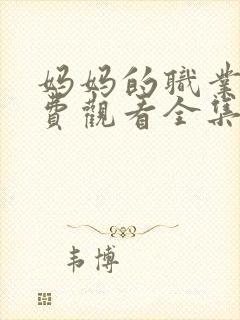 妈妈的職業
费觀看全集
韦博